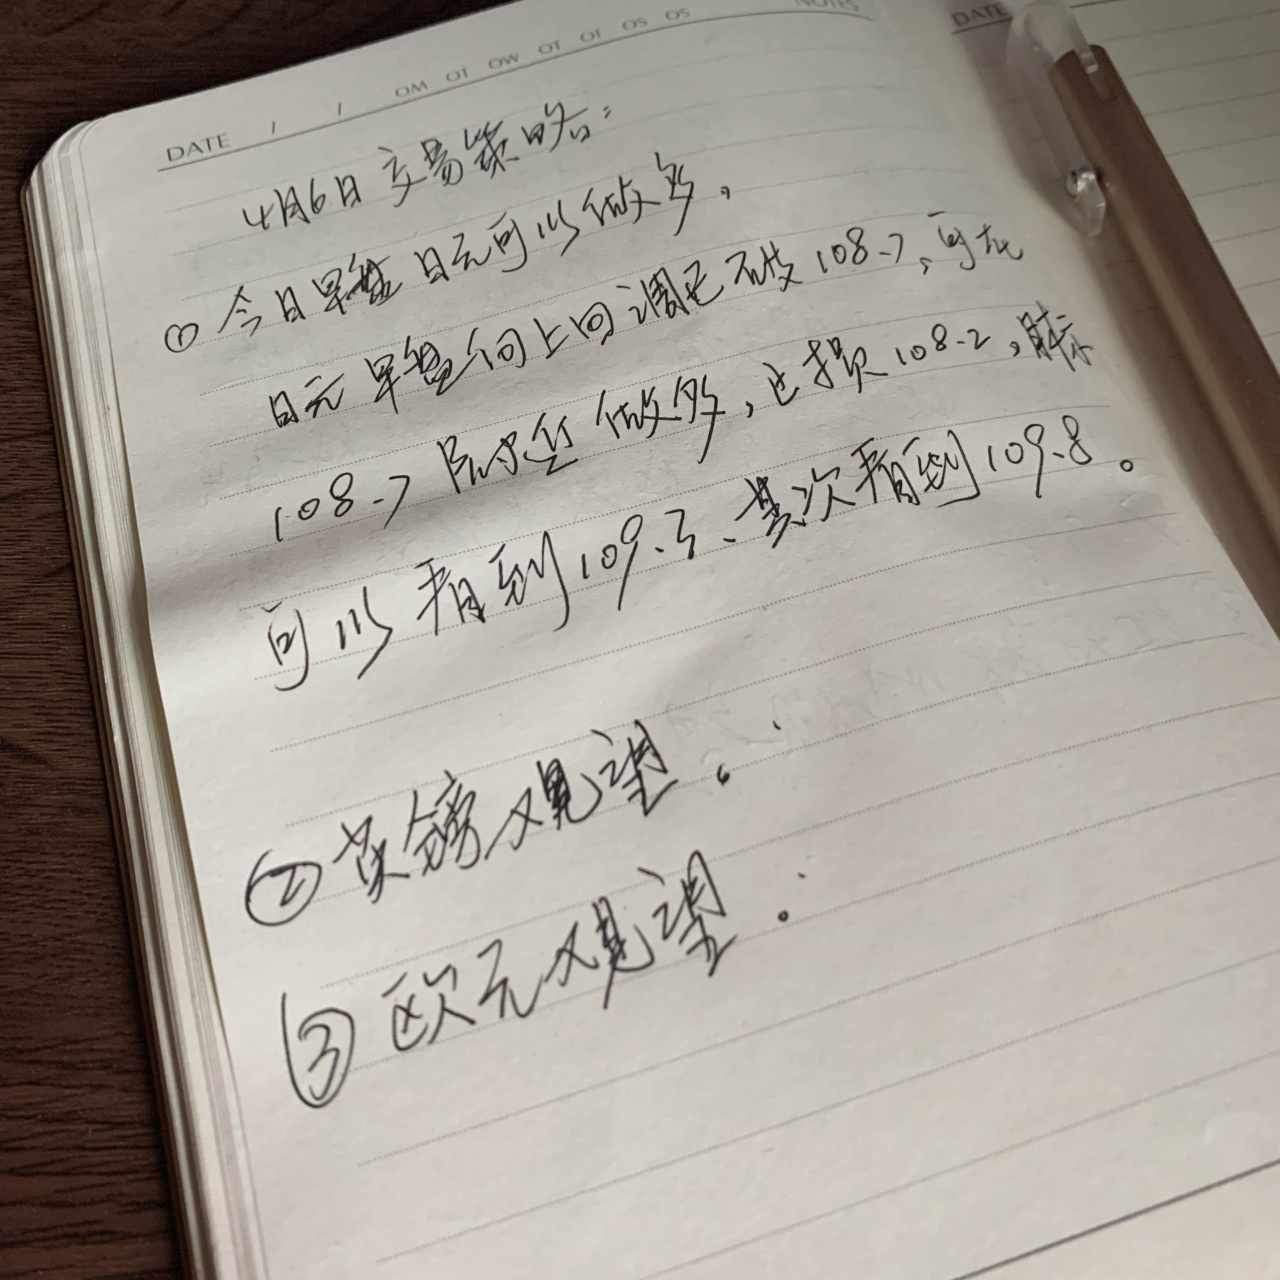 NOTES
DATE / / OM OT OW OT OF OS OS
DATE
4月6日交易策略:
① 今日早盘日元可以做多,
日元早盘向上回调已不破108.7,可在
108.7附近做多,止损108.2,目标
可以看到109.3、其次看到109.8。
② 英镑观望.
③ 欧元观望.